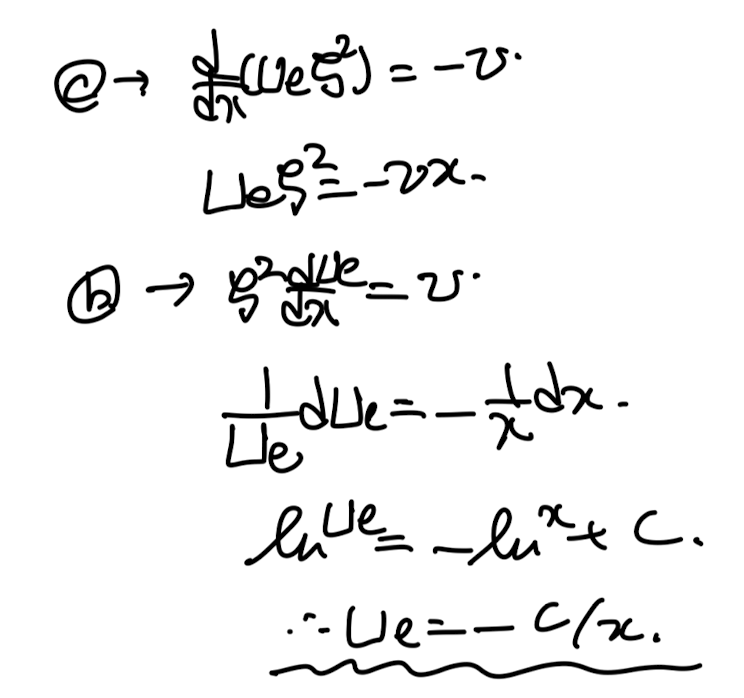 ⓒ → d/dx(Ueξ²) = -ν.
Ueξ² = -νx.
ⓑ → ξ² dUe/dx = ν.
1/Ue dUe = - 1/x dx.
ln Ue = - ln x + C.
∴ Ue = - C/x.